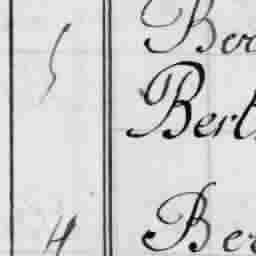 Ber
5 Bert
4 Ber